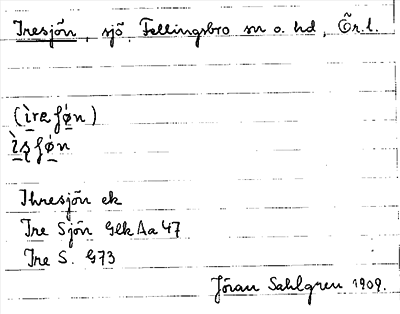 Iresjön, sjö, Fellingsbro sn o. hd, Ör. l.
(ìreʃøn)
ìʂʃøn
Ihresjön ek
Ire Sjön GlkAa47
Ire S. G73
Jöran Sahlgren 1909.